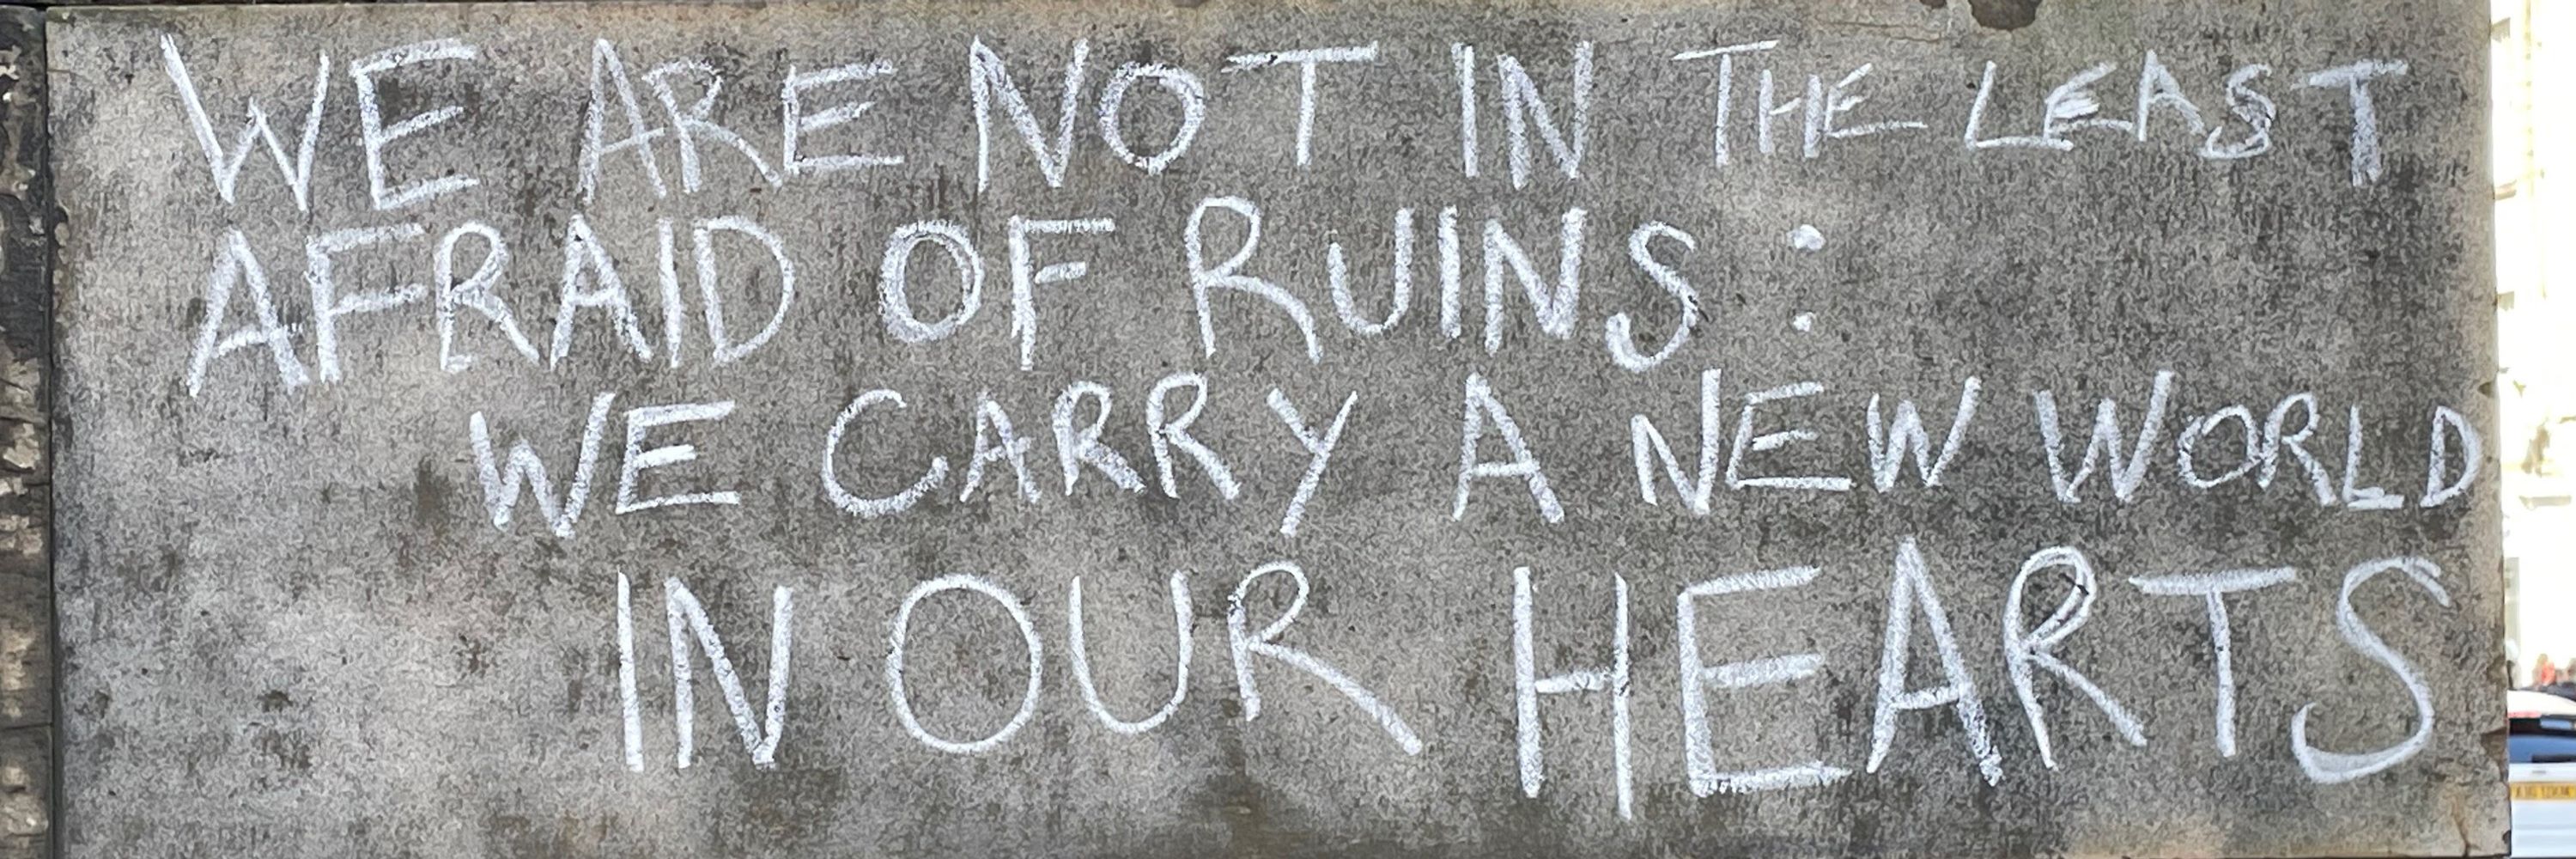 WE ARE NOT IN THE LEAST
AFRAID OF RUINS:
WE CARRY A NEW WORLD
IN OUR HEARTS